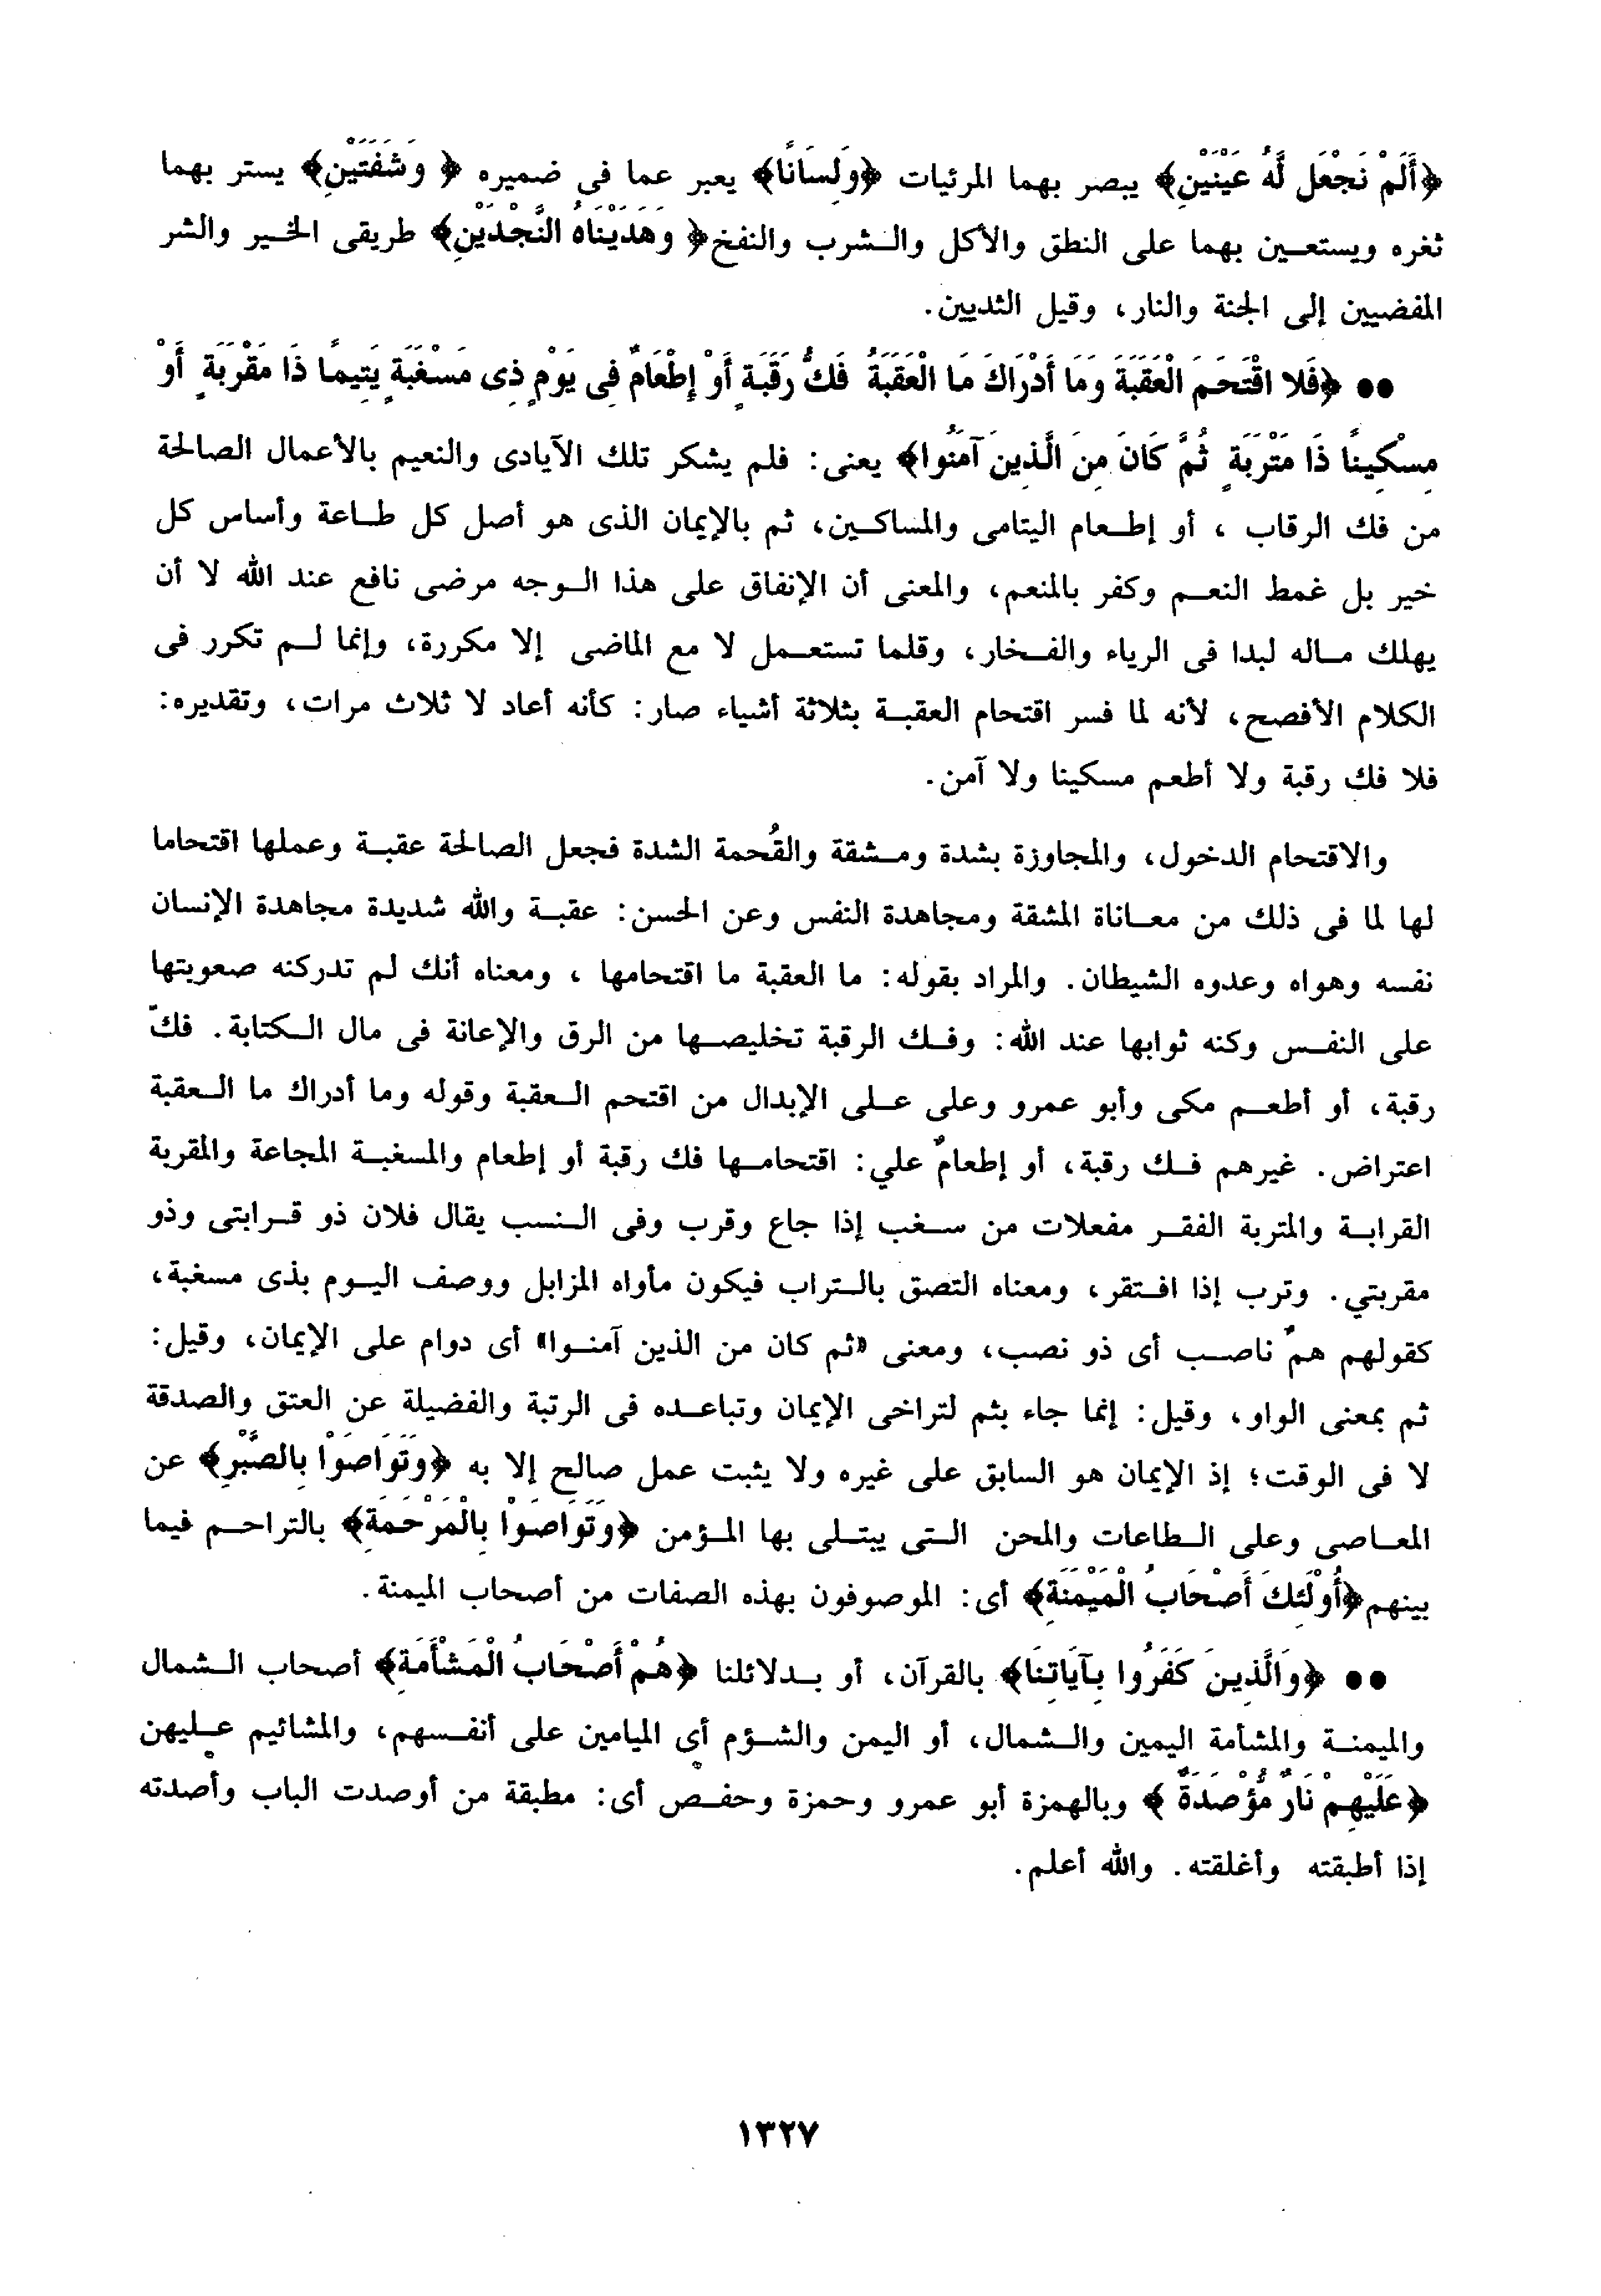 ﴿أَلَمْ نَجْعَل لَّهُ عَيْنَيْنِ﴾ يبصر بهما المرئيات ﴿وَلِسَانًا﴾ يعبر عما في ضميره ﴿ وَشَفَتَيْنِ﴾ يستر بهما
ثغره ويستعين بهما على النطق والأكل والشرب والنفخ﴿ وَهَدَيْنَاهُ النَّجْدَيْنِ﴾ طريقى الخير والشر
المفضيين إلى الجنة والنار، وقيل الثديين.
●● ﴿فَلا اقْتَحَمَ الْعَقَبَةَ وَمَا أَدْرَاكَ مَا الْعَقَبَةُ فَكُّ رَقَبَةٍ أَوْ إِطْعَامٌ فِى يَوْمٍ ذِى مَسْغَبَةٍ يَتِيمًا ذَا مَقْرَبَةٍ أَوْ
مِسْكِينًا ذَا مَتْرَبَةٍ ثُمَّ كَانَ مِنَ الَّذِينَ آمَنُوا﴾ يعنى: فلم يشكر تلك الآيادى والنعيم بالأعمال الصالحة
من فك الرقاب ، أو إطعام اليتامى والمساكين، ثم بالإيمان الذى هو أصل كل طاعة وأساس كل
خير بل غمط النعم وكفر بالمنعم، والمعنى أن الإنفاق على هذا الوجه مرضى نافع عند الله لا أن
يهلك ماله لبدا فى الرياء والفخار، وقلما تستعمل لا مع الماضى إلا مكررة، وإنما لم تكرر فى
الكلام الأفصح، لأنه لما فسر اقتحام العقبة بثلاثة أشياء صار: كأنه أعاد لا ثلاث مرات، وتقديره:
فلا فك رقبة ولا أطعم مسكينا ولا آمن.
والاقتحام الدخول، والمجاوزة بشدة ومشقة والقُحمة الشدة فجعل الصالحة عقبة وعملها اقتحاما
لها لما فى ذلك من معاناة المشقة ومجاهدة النفس وعن الحسن: عقبة والله شديدة مجاهدة الإنسان
نفسه وهواه وعدوه الشيطان. والمراد بقوله: ما العقبة ما اقتحامها ، ومعناه أنك لم تدركنه صعوبتها
على النفس وكنه ثوابها عند الله: وفك الرقبة تخليصها من الرق والإعانة فى مال الكتابة. فكّ
رقبة، أو أطعم مكى وأبو عمرو وعلى على الإبدال من اقتحم العقبة وقوله وما أدراك ما العقبة
اعتراض. غيرهم فك رقبة، أو إطعامٌ علي: اقتحامها فك رقبة أو إطعام والمسغبة المجاعة والمقربة
القرابة والمتربة الفقر مفعلات من سغب إذا جاع وقرب وفى النسب يقال فلان ذو قرابتى وذو
مقربتي. وترب إذا افتقر، ومعناه التصق بالتراب فيكون مأواه المزابل ووصف اليوم بذى مسغبة،
كقولهم همٌ ناصب أى ذو نصب، ومعنى «ثم كان من الذين آمنوا» أى دوام على الإيمان، وقيل:
ثم بمعنى الواو، وقيل: إنما جاء بثم لتراخى الإيمان وتباعده فى الرتبة والفضيلة عن العتق والصدقة
لا فى الوقت؛ إذ الإيمان هو السابق على غيره ولا يثبت عمل صالح إلا به ﴿وَتَوَاصَوْا بِالصَّبْرِ﴾ عن
المعاصى وعلى الطاعات والمحن التى يبتلى بها المؤمن ﴿وَتَوَاصَوْا بِالْمَرْحَمَةِ﴾ بالتراحم فيما
بينهم﴿أُوْلَئِكَ أَصْحَابُ الْمَيْمَنَةِ﴾ أى: الموصوفون بهذه الصفات من أصحاب الميمنة.
●● ﴿وَالَّذِينَ كَفَرُوا بِآيَاتِنَا﴾ بالقرآن، أو بدلائلنا ﴿هُمْ أَصْحَابُ الْمَشْأَمَةِ﴾ أصحاب الشمال
والميمنة والمشأمة اليمين والشمال، أو اليمن والشؤم أي الميامين على أنفسهم، والمشائيم عليهن
﴿عَلَيْهِمْ نَارٌ مُؤْصَدَةٌ ﴾ وبالهمزة أبو عمرو وحمزة وحفص أى: مطبقة من أوصدت الباب وأصدته
إذا أطبقته وأغلقته. والله أعلم.
١٣٢٧